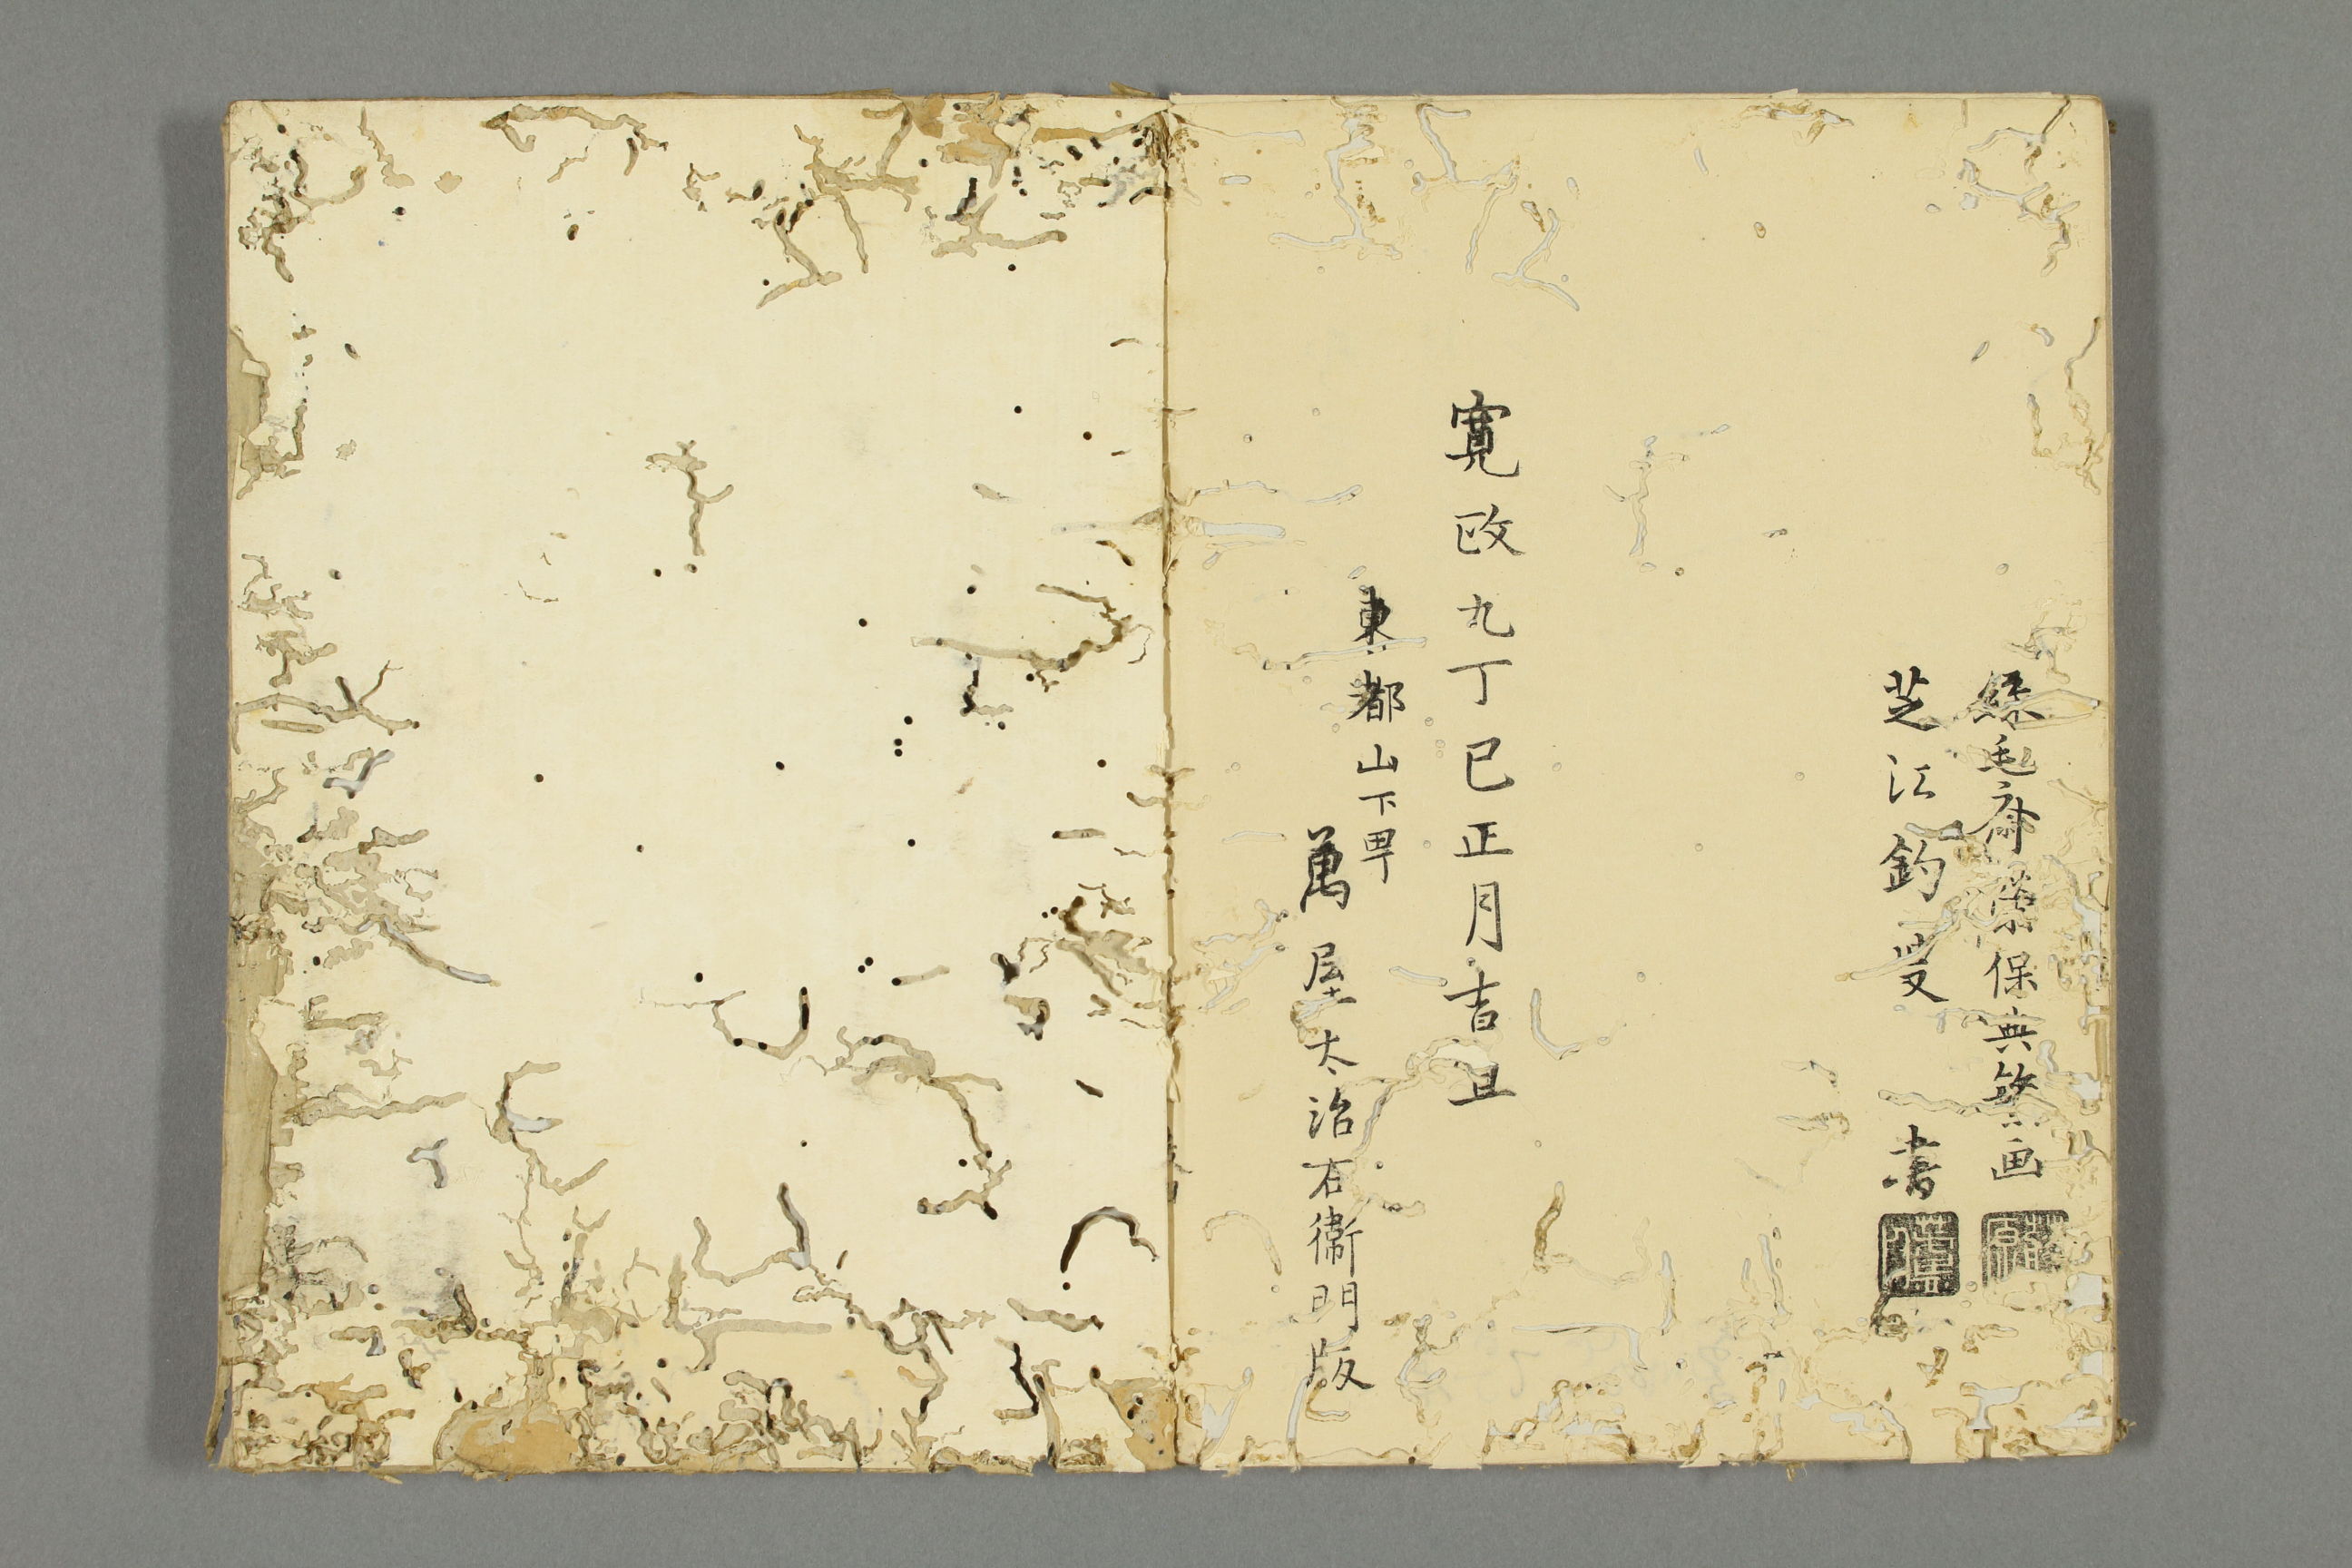 緑毛斎栄保典繁画
芝江釣叟 書
寛政九丁巳正月吉旦
東都山下町
萬屋太治右衛門版